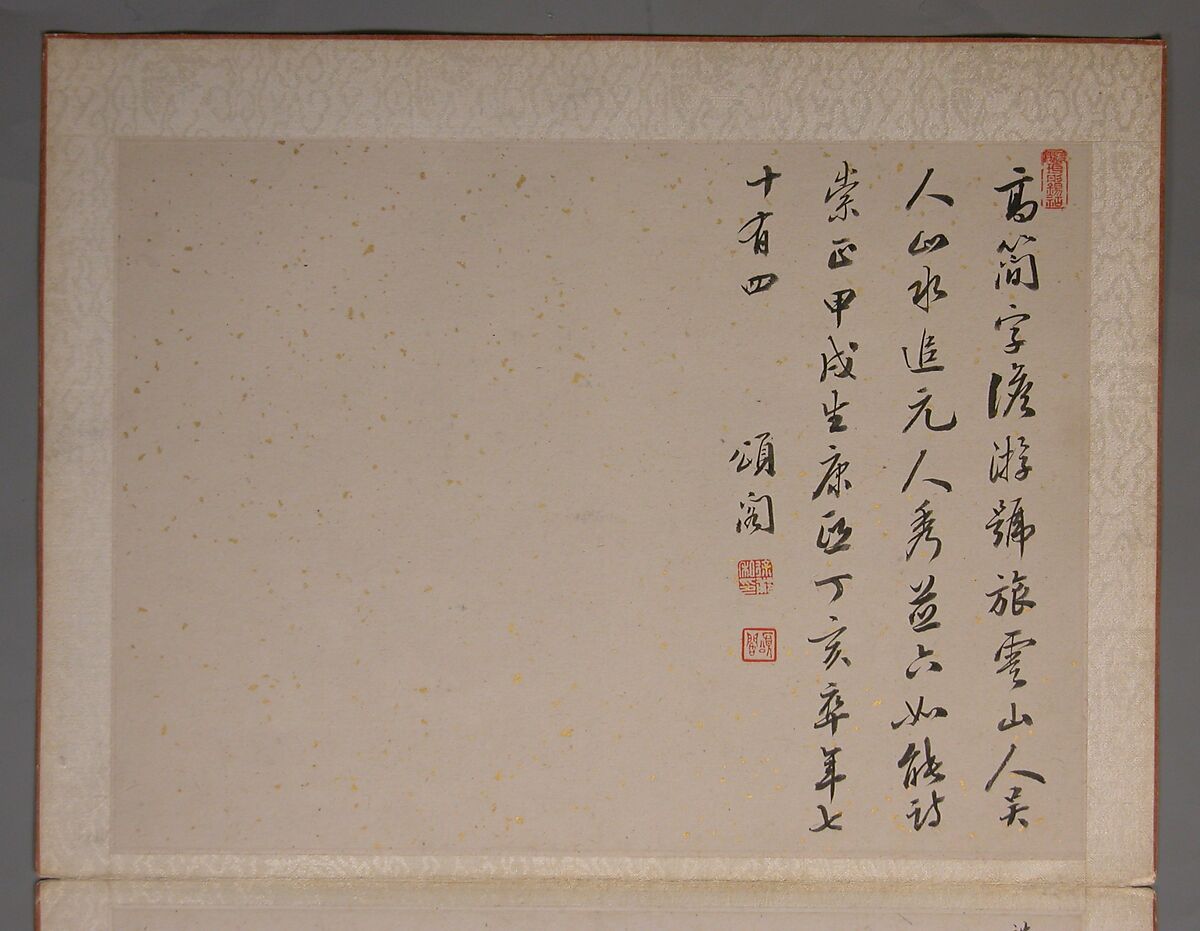 高簡字澹游號旅雲山人吴
人山水追元人秀並六如能詩
崇正甲戌生康熙丁亥卒年七
十有四
頌閣
頌閣